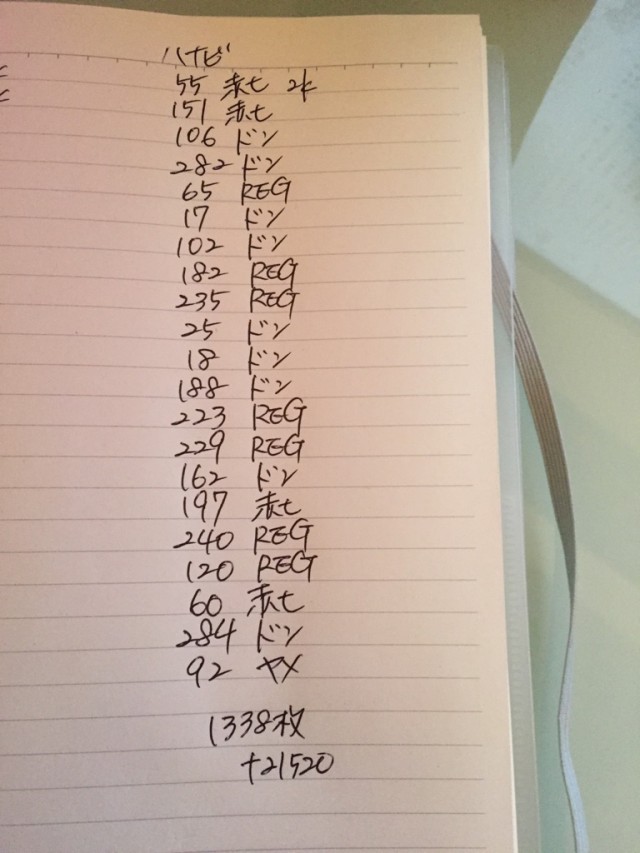 ハナビ
55 赤七 2k
151 赤七
106 ドン
282 ドン
65 REG
17 ドン
102 ドン
182 REG
235 REG
25 ドン
18 ドン
188 ドン
223 REG
229 REG
162 ドン
197 赤七
240 REG
120 REG
60 赤七
284 ドン
92 ヤメ
1338枚
+21520